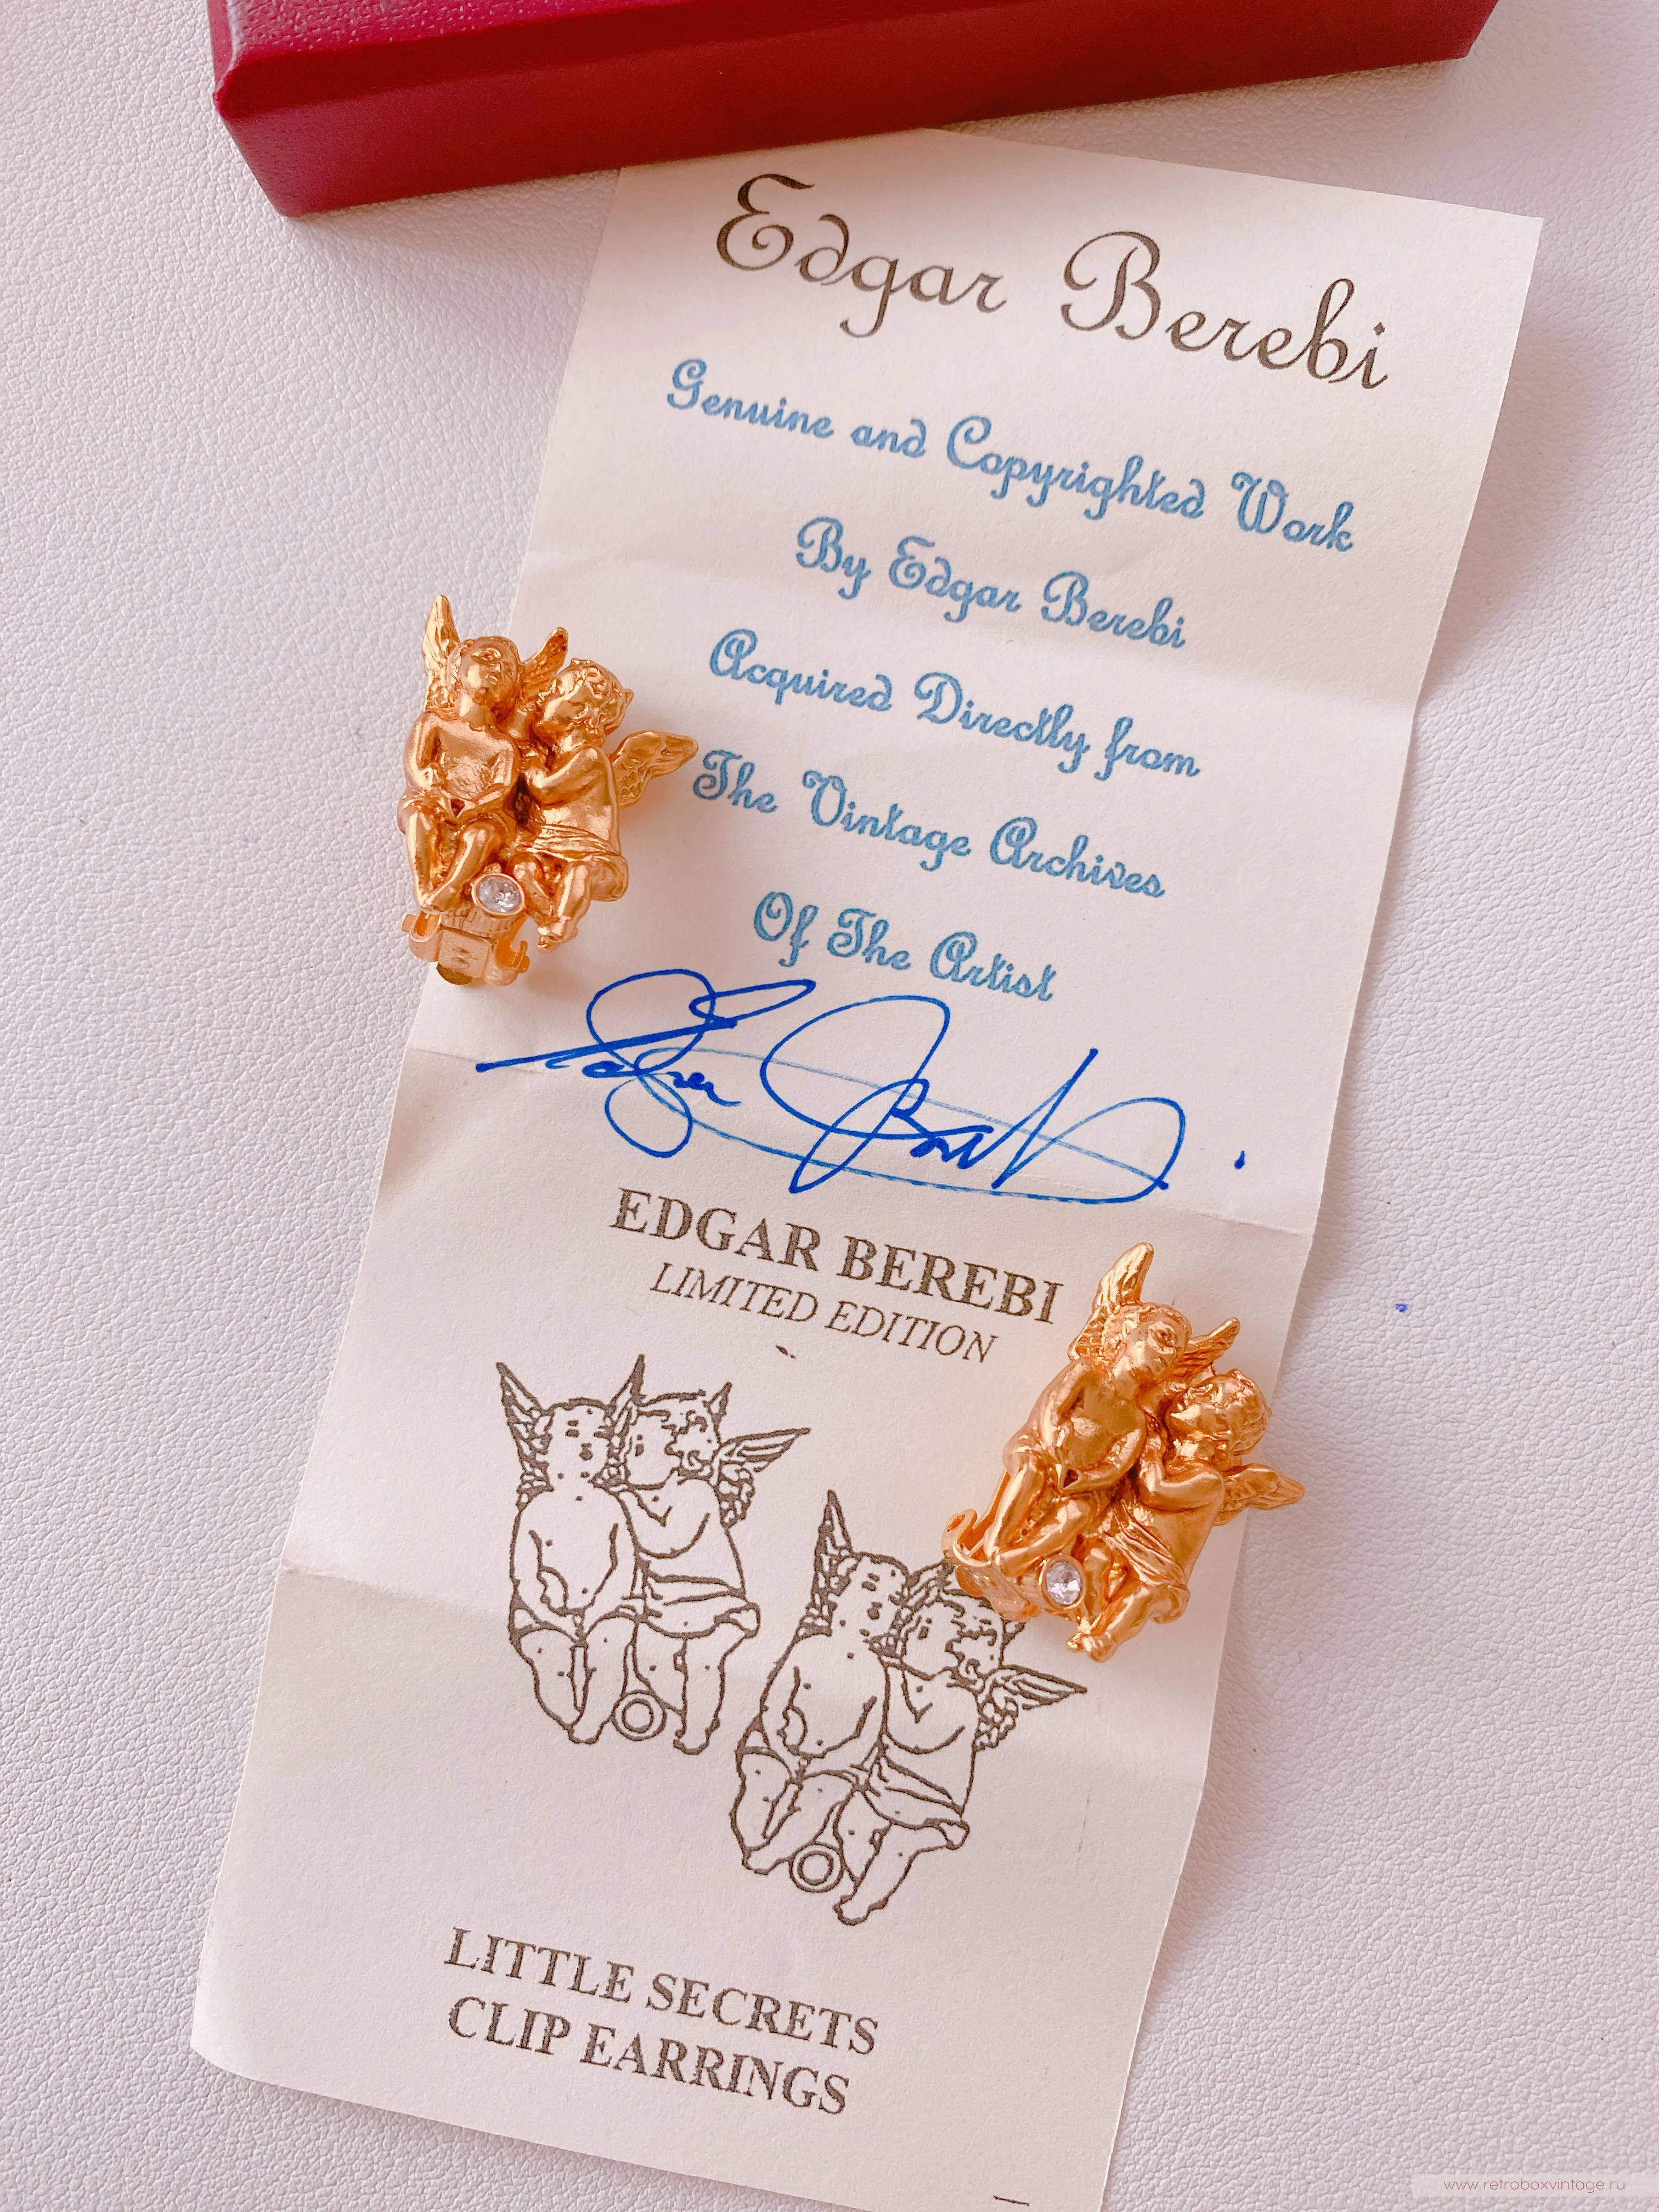 Edgar Berebi
Genuine and Copyrighted Work
By Edgar Berebi
Acquired Directly from
The Vintage Archives
Of The Artist
EDGAR BEREBI
LIMITED EDITION
LITTLE SECRETS
CLIP EARRINGS
www.retroboxvintage.ru